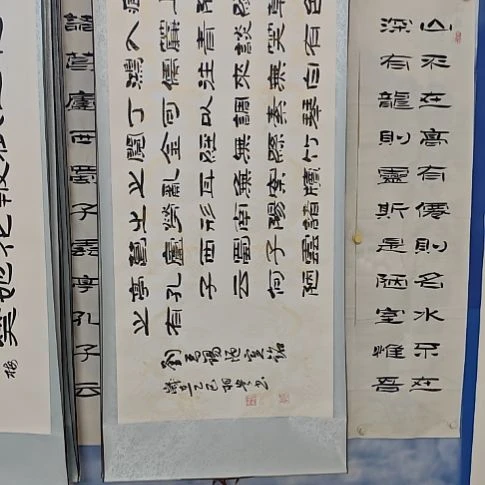 山不在高有僊則名水不在
深有龍則靈斯是陋室惟吾
入簾青談笑有
鴻儒往來無白
丁可以調素琴
閱金經無絲竹
之亂耳無案牘
之勞形南陽諸
葛廬西蜀子雲
亭孔子云何陋
之有
劉禹錫陋室銘
諸葛廬西蜀子雲亭孔子云